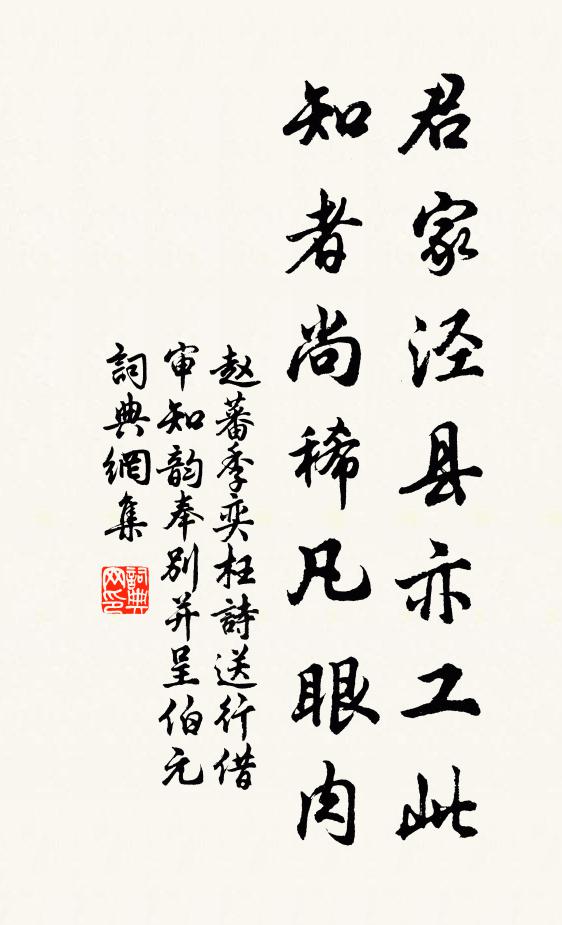 君家泾县亦工此
知者尚稀凡眼肉
赵蕃季奕枉詩送行借
审知韵奉别并呈伯元
詞典網集
詞典
网印